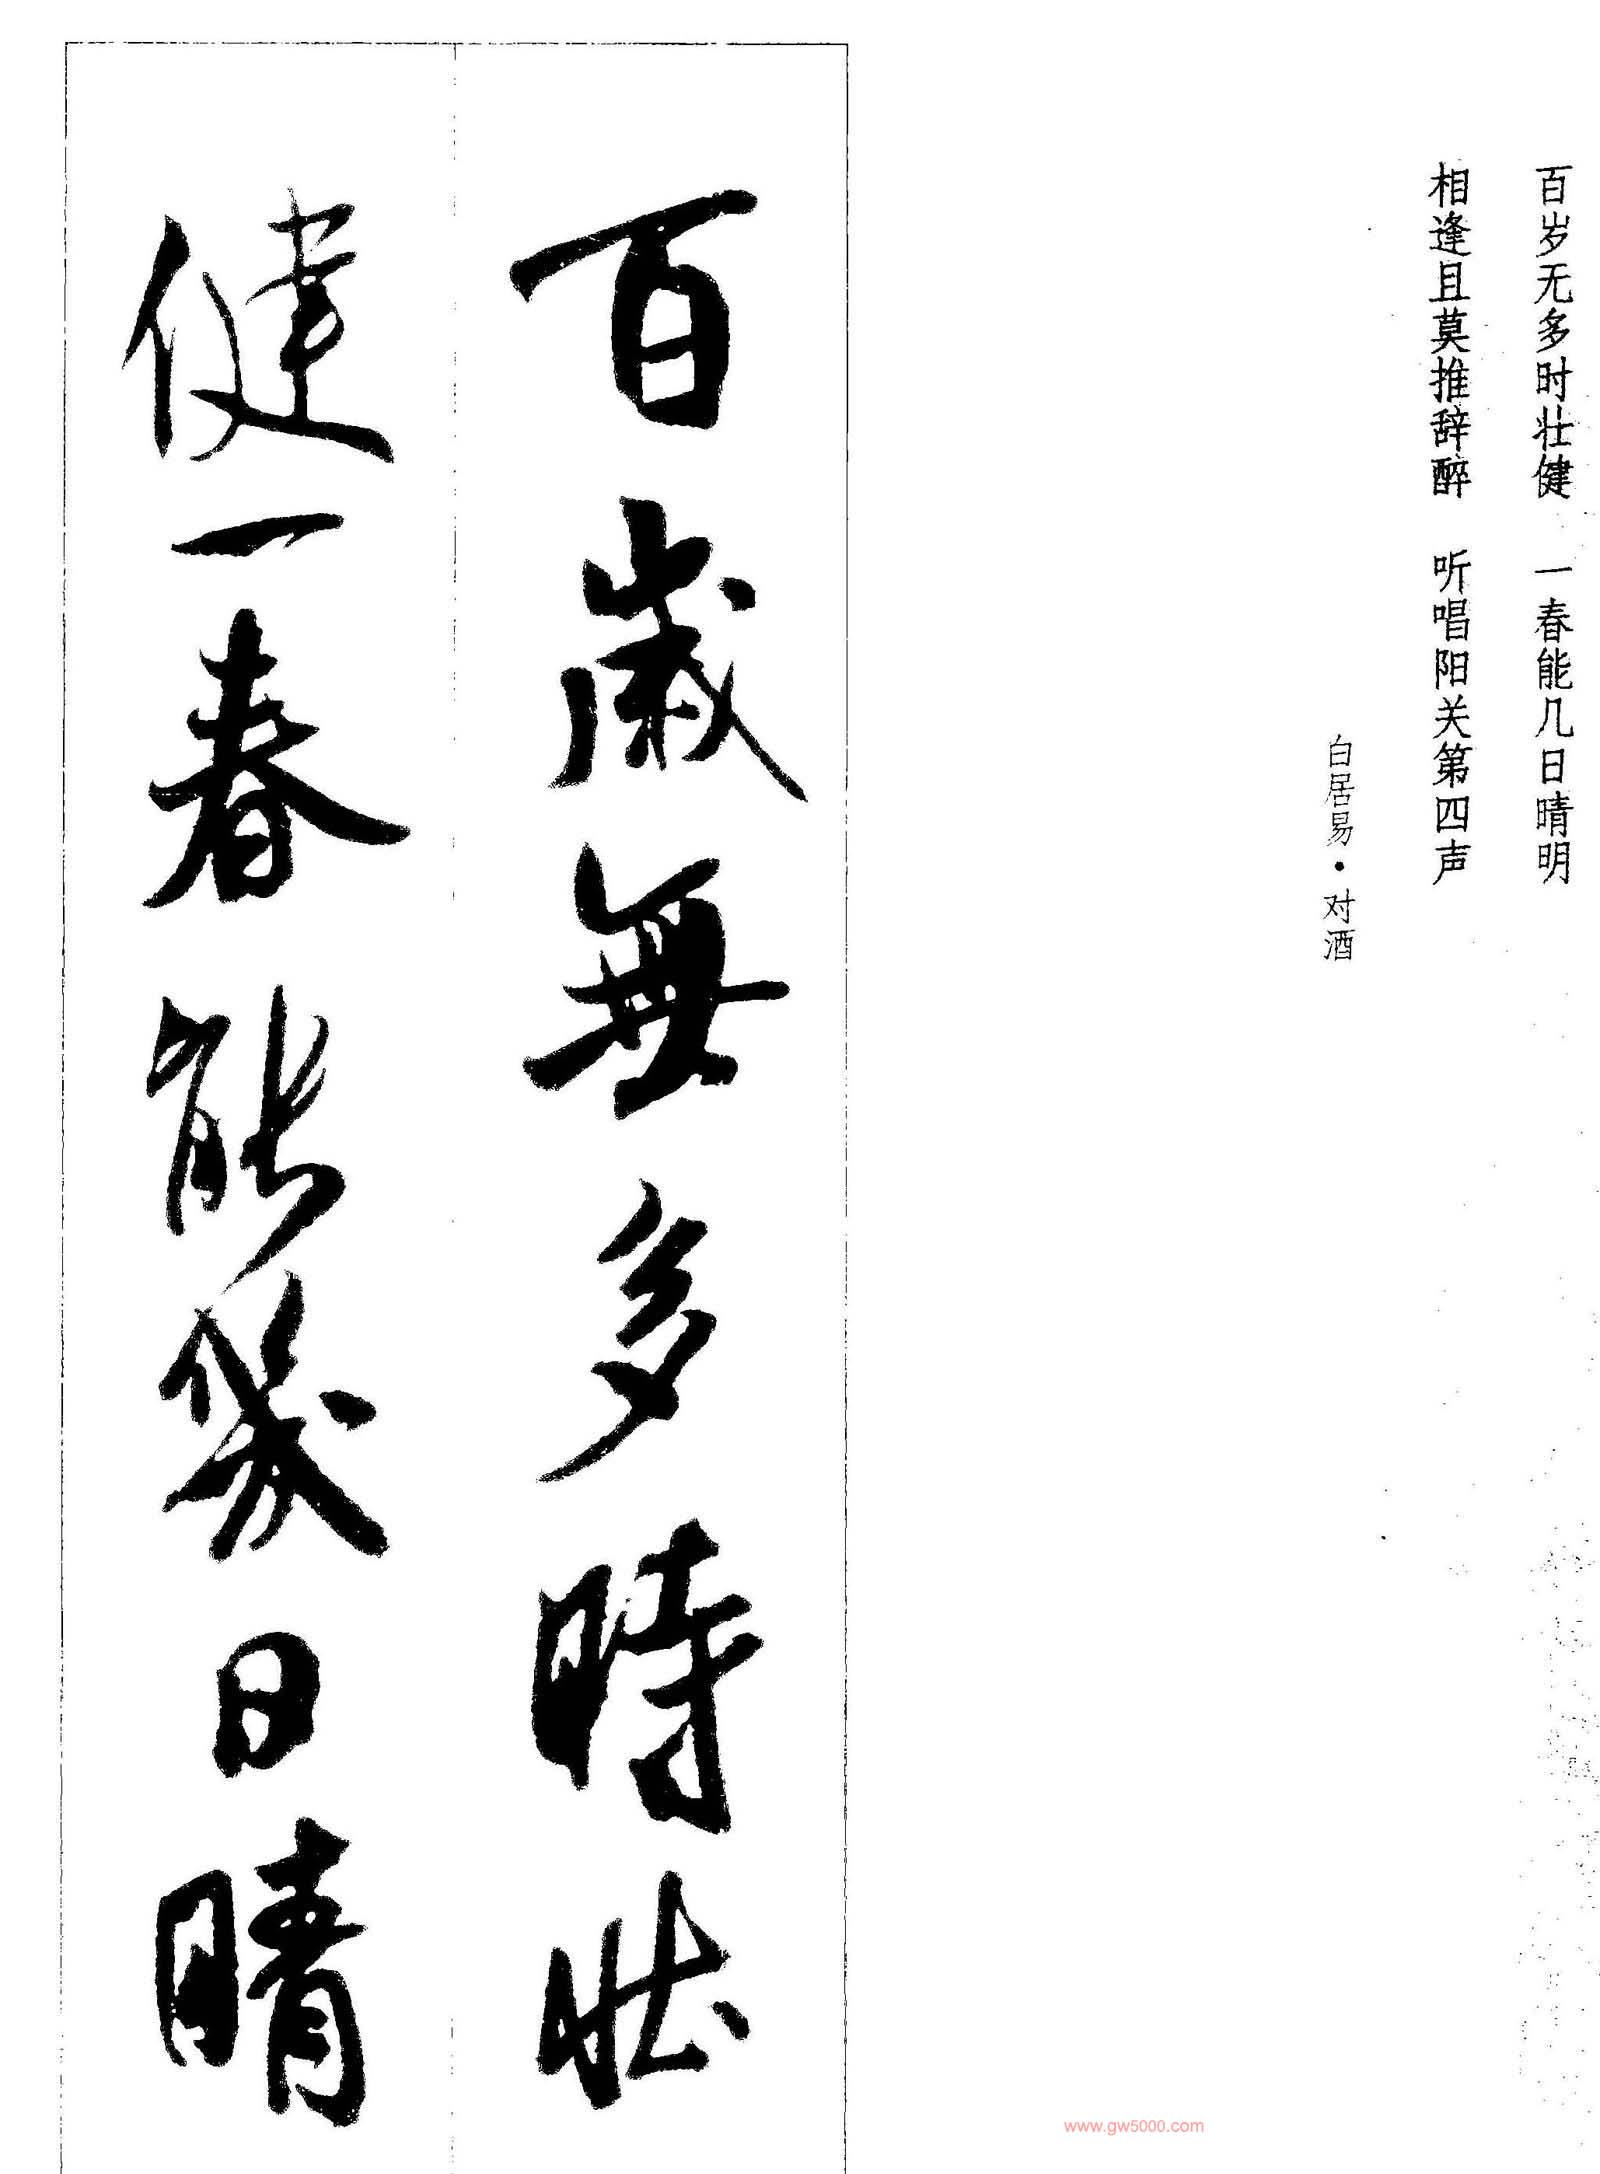 百岁无多时壮健　一春能几日晴明
相逢且莫推辞醉　听唱阳关第四声
白居易·对酒
百歲無多時壯
健一春能幾日晴
www.gw5000.com